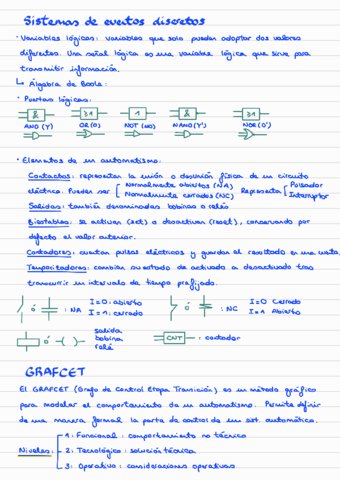 Sistemas de eventos discretos
· Variables lógicas: variables que solo pueden adoptar dos valores
diferentes. Una señal lógica es una variable lógica que sirve para
transmitir información.
↳ Álgebra de Boole:
· Puertas lógicas:
& ≥1 1 & ≥1
AND (Y) OR (O) NOT (NO) NAND (Y') NOR (O')
· Elementos de un automatismo:
Contactos: representan la unión o desunión física de un circuito
eléctrico. Pueden ser [ Normalmente abiertos (NA) Normalmente cerrados (NC) Representa [ Pulsador Interruptor
Salidas: también denominadas bobina o relé
Biestables: se activan (set) o desactivan (reset), conservando por
defecto el valor anterior.
Contadores: cuentan pulsos eléctricos y guardan el resultado en una
Temporizadores: cambian su estado de activado a desactivado tras
transcurrir un intervalo de tiempo prefijado.
ó : NA I=0: abierto I=1: cerrado ó : NC I=0 Cerrado I=1 Abierto
ó -( )- salida bobina relé CNT : contador
GRAFCET
El GRAFCET (Grafo de Control Etapa Transición) es un método gráfico
para modelar el comportamiento de un automatismo. Permite definir
de una manera formal la parte de control de un sist. automático.
Niveles:
1: Funcional: comportamiento no técnico
2: Tecnológico: solución técnica
3: Operativo: consideraciones operativas